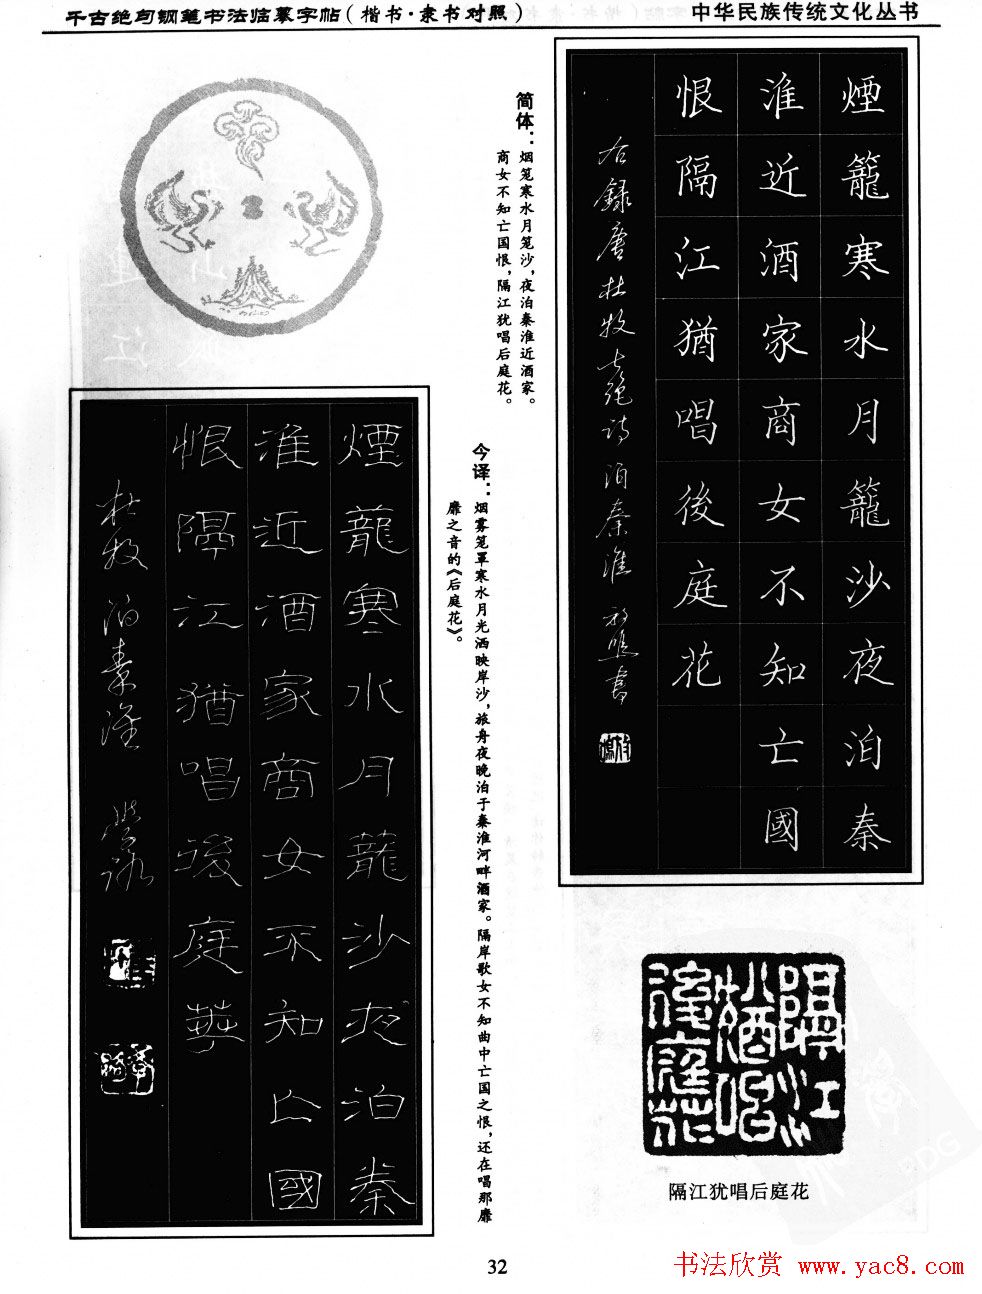 千古绝句钢笔书法临摹字帖(楷书·隶书对照)
中华民族传统文化丛书
煙籠寒水月籠沙夜泊秦
淮近酒家商女不知亡國
恨隔江猶唱後庭花
右録唐杜牧七绝诗泊秦淮
简体:烟笼寒水月笼沙,夜泊秦淮近酒家。
商女不知亡国恨,隔江犹唱后庭花。
今译:烟雾笼罩寒水月光洒映岸沙,旅舟夜晚泊于秦淮河畔酒家。隔岸歌女不知曲中亡国之恨,还在唱那靡
靡之音的《后庭花》。
煙蘢寒水月蘢沙夜泊秦
淮近酒家商女不知亾國
恨隔江猶唱後庭華
杜牧泊秦淮
隔江猶唱後庭花
隔江犹唱后庭花
32
书法欣赏 www.yac8.com